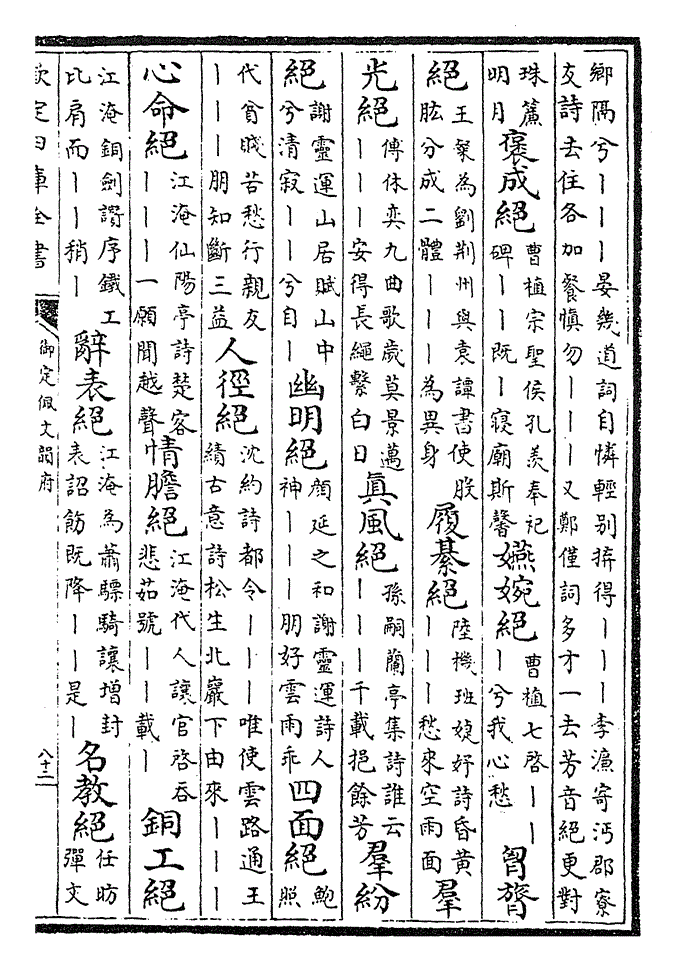 鄉隅兮丨丨丨晏幾道詞自憐輕别拚得丨丨丨李濂寄沔郡寮
友詩去住各加餐慎勿丨丨丨又鄭僅詞多才一去芳音絕更對
珠簾明月褒成絕曹植宗聖侯孔羨奉祀碑丨丨既丨寢廟斯馨嬿婉絕曹植七啓丨丨丨兮我心愁胷膂
絕王粲為劉荆州與袁譚書使股肱分成二體丨丨丨為異身履綦絕陸機班婕妤詩昏黄丨丨丨愁來空雨面羣
光絕傅休奕九曲歌歲莫景邁丨丨丨安得長繩繫白日眞風絕孫嗣蘭亭集詩誰云丨丨丨千載挹餘芳羣紛
絕謝靈運山居賦山中兮清寂丨丨兮自丨幽明絕顔延之和謝靈運詩人神丨丨丨朋好雲雨乖四面絕鮑照
代貧賤苦愁行親友丨丨丨朋知斷三益人徑絕沈約詩都令丨丨丨唯使雲路通王績古意詩松生北巖下由來丨丨丨
心命絕江淹仙陽亭詩楚客丨丨丨一願聞越聲情膽絕江淹代人讓官啓吞悲茹號丨丨載丨銅工絕
江淹銅劍讚序鐵工比肩而丨丨稍丨辭表絕江淹為蕭驃騎讓增封表詔飭既降丨丨是丨名教絕任昉彈文
欽定四庫全書
御定佩文韻府
八十二